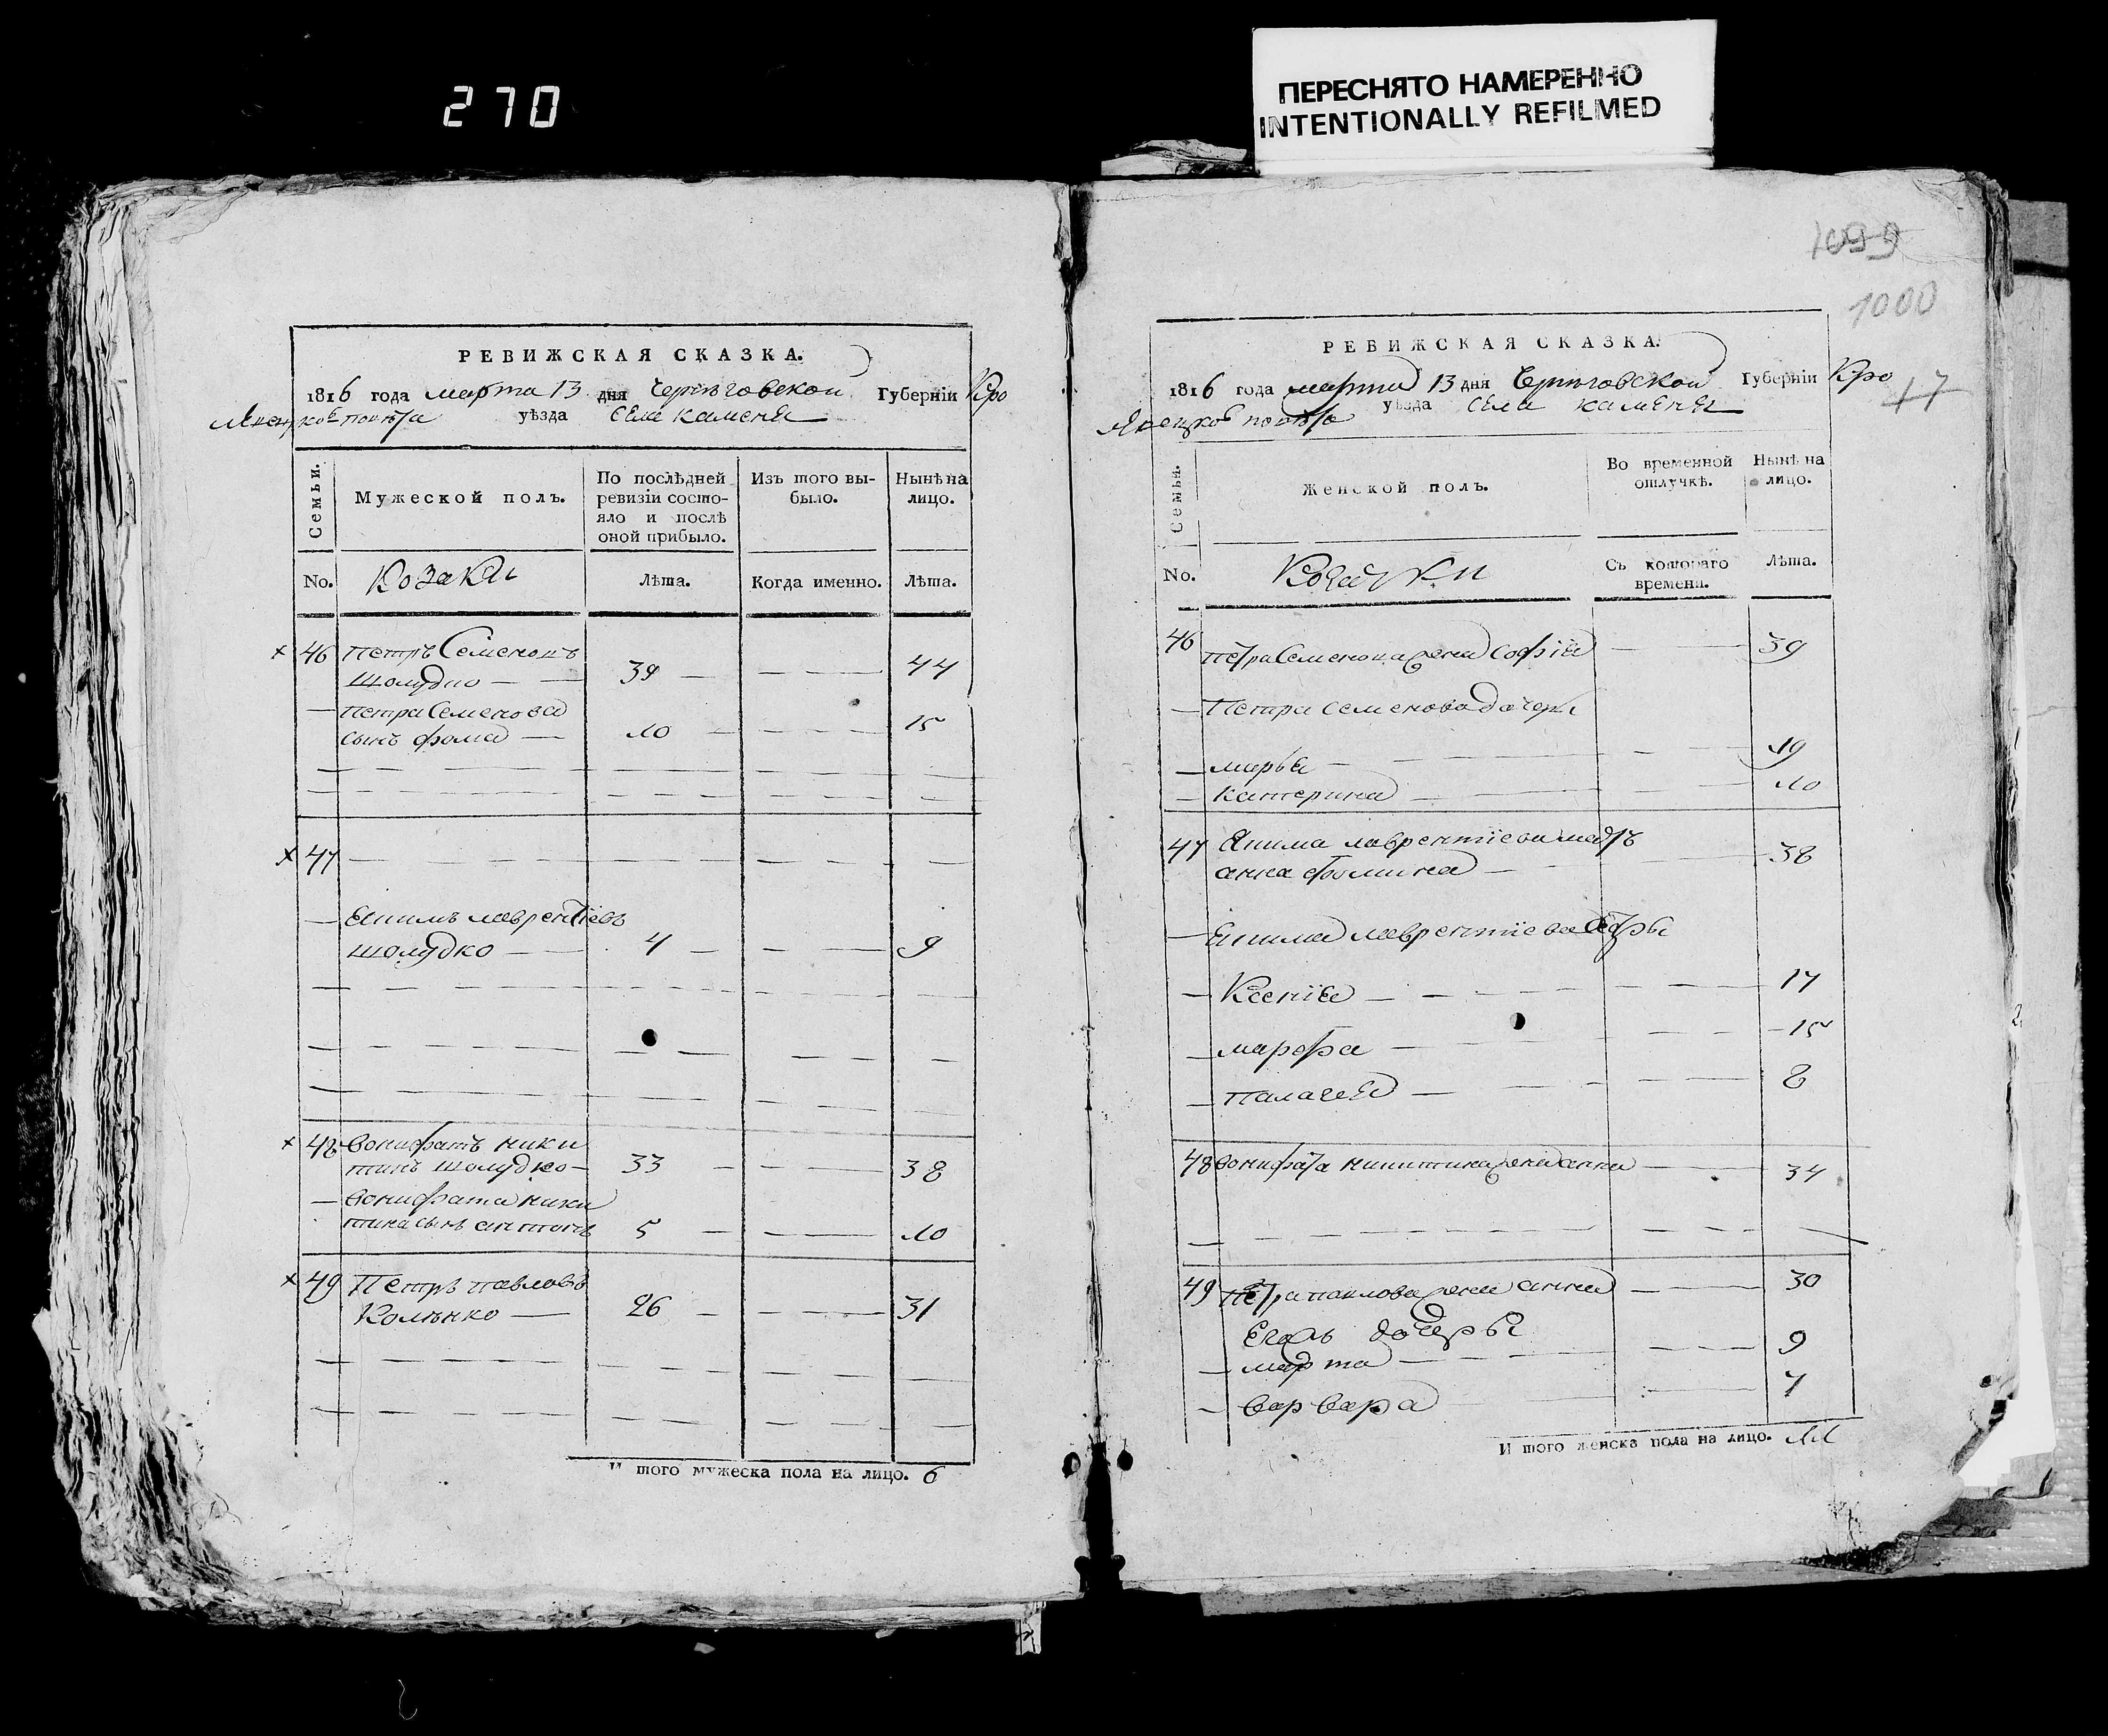 270
ПЕРЕСНЯТО НАМЕРЕННО
INTENTIONALLY REFILMED
1000
17
РЕВИЖСКАЯ СКАЗКА.
1816 года марта 13 дня Черниговской Губерніи Кро
уѣзда Села Каменя
Семьи.
Мужеской полъ.
По послѣдней ревизіи состояло и послѣ оной прибыло.
Изъ того выбыло.
Нынѣ на лицо.
No. Козаки Лѣта. Когда именно. Лѣта.
46 Петръ Семеновъ
Шолудко 39 44
Петра Семенова
сынъ фома 10 15
47
Епимъ лаврентіевъ
шолудко 4 9
48 вонифатъ ники
тинъ шолудко 33 38
вонифата ники
тина сынъ антонъ 5 10
49 Петръ павловъ
Колѣнко 26 31
И того мужеска пола на лицо. 6
РЕВИЖСКАЯ СКАЗКА.
1816 года марта 13 дня Черниговской Губерніи Кро
уѣзда Села каменя
Семьи.
Женской полъ.
Во временной отлучкѣ.
Нынѣ на лицо.
No. Козачки Съ котораго времени. Лѣта.
46 петра Семенова жена Софія 39
Петра семенова дочери
марья 19
катерина 10
47 Епима лаврентіева мать
анна фомина 38
Епима лаврентіева сестры
Ксенія 17
марфа 15
палагея 8
48 вонифата никитина жена анна 34
49 петра павлова жена анна 30
Егожъ дочеры
марта 9
варвара 7
И того женска пола на лицо. 11